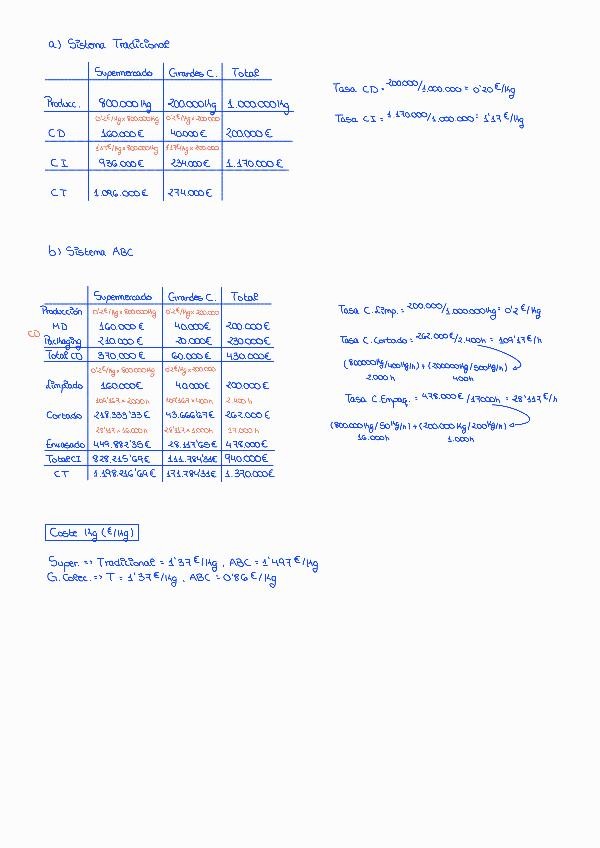 a) Sistema Tradicional
Supermercado Grandes C. Total
Producc. 800.000Kg 200.000Kg 1.000.000Kg
0'2€/Kg x 800.000Kg 0'2€/Kg x 200.000
CD 160.000€ 40.000€ 200.000€
1'17€/Kg x 800.000Kg 1'17€/Kg x 200.000
CI 936.000€ 234.000€ 1.170.000€
CT 1.096.000€ 274.000€
Tasa CD = 200.000/1.000.000 = 0'20€/Kg
Tasa CI = 1.170.000/1.000.000 = 1'17€/Kg
b) Sistema ABC
Supermercado Grandes C. Total
Producción 0'2€/Kg x 800.000Kg 0'2€/Kg x 200.000
MD 160.000€ 40.000€ 200.000€
CD Packaging 210.000€ 20.000€ 230.000€
Total CD 370.000€ 60.000€ 430.000€
0'2€/Kg x 800.000Kg 0'2€/Kg x 200.000
Limpiado 160.000€ 40.000€ 200.000€
109'167 x 2000h 109'167 x 400h 2.400h
Cortado 218.333'33€ 43.666'67€ 262.000€
28'117 x 16.000h 28'117 x 1.000h 17.000h
Envasado 449.882'35€ 28.117'65€ 478.000€
Total CI 828.215'69€ 111.784'31€ 940.000€
CT 1.198.216'69€ 171.784'31€ 1.370.000€
Tasa C.Limp. = 200.000/1.000.000Kg = 0'2€/Kg
Tasa C.Cortado = 262.000€/2.400h = 109'17€/h
(800000Kg/400Kg/h) + (200000Kg/500Kg/h)
2.000h 400h
Tasa C.Empaq. = 478.000€/17000h = 28'117€/h
(800.000Kg/50Kg/h) + (200.000Kg/200Kg/h)
16.000h 1.000h
Coste Kg (€/Kg)
Super. => Tradicional = 1'37€/Kg, ABC = 1'497€/Kg
G. Colec. => T = 1'37€/Kg, ABC = 0'86€/Kg